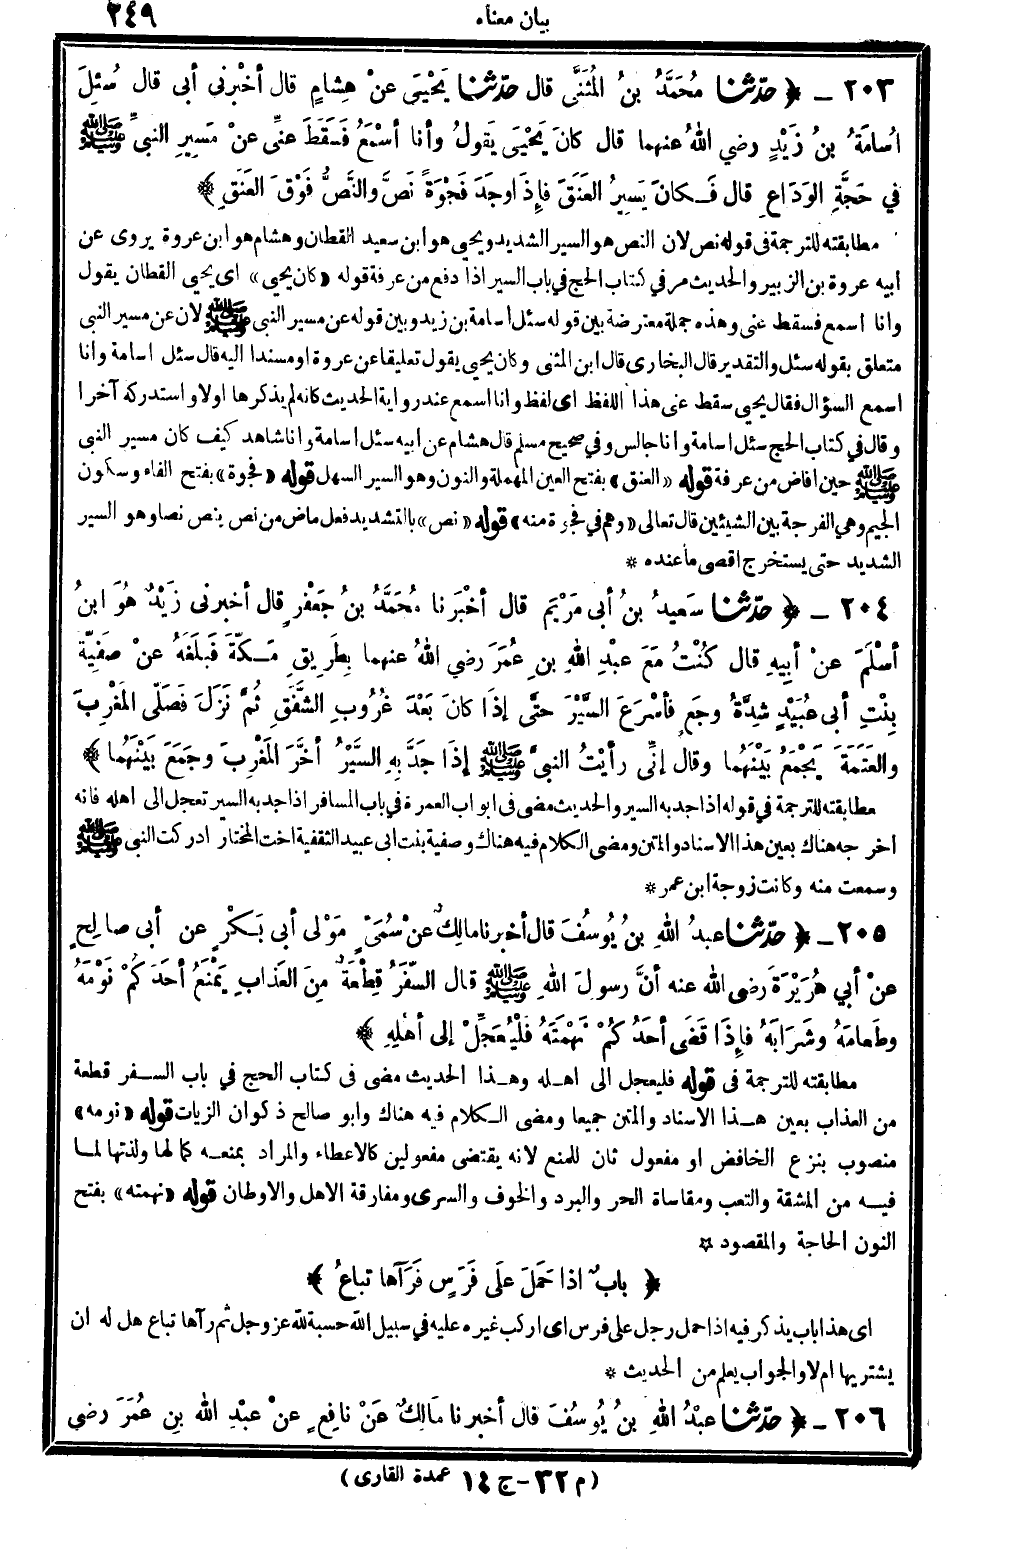 بيان معناه
٢٤٩
٢٠٣ – ﴿ حدّثنا مُحَمَّدُ بنُ المُثَنَّى قال حدّثنا يَحْيَى عنْ هِشامٍ قال أخْبرنى أبى قال سُئِلَ
اُسامَةُ بنُ زَيْدٍ رضي اللهُ عنهما قال كانَ يَحْيَى يَقولُ وأنا أسْمَعُ فَسَقَطَ عنِّى عنْ مَسِيرِ النبيِّ ﷺ
في حَجَّةِ الوَدَاعِ قال فَـكانَ يَسِيرُ العَنَقَ فإِذَا وجَدَ فَجْوَةً نَصَّ والنَّصُّ فَوْقَ العَنَقِ ﴾
مطابقته للترجمة فى قوله نص لان النص هو السير الشديد ويحيى هو ابن سعيد القطان وهشام هو ابن عروة يروى عن
ابيه عروة بن الزبير والحديث مر في كتاب الحج في باب السير اذا دفع من عرفة قوله «كان يحيى» اى يحيى القطان يقول
وانا اسمع فسقط عنى وهذه جملة معترضة بين قوله سئل اسامة بن زيد وبين قوله عن مسير النبى ﷺ لان عن مسير النبى
متعلق بقوله سئل والتقدير قال البخارى قال ابن المثنى وكان يحيى يقول تعليقا عن عروة او مسندا اليه قال سئل اسامة وانا
اسمع السؤال فقال يحيى سقط عنى هذا اللفظ اى لفظ وانا اسمع عند رواية الحديث كانه لم يذكرها اولا واستدركه آخرا
وقال في كتاب الحج سئل اسامة وانا جالس وفي صحيح مسلم قال هشام عن ابيه سئل اسامة وانا شاهد كيف كان مسير النبى
ﷺ حين افاض من عرفة قوله «العنق» بفتح العين المهملة والنون وهو السير السهل قوله «فجوة» بفتح الفاء وسكون
الجيم وهي الفرجة بين الشيئين قال تعالى «وهم في فجوة منه» قوله «نص» بالتشديد فعل ماض من نص ينص نصا وهو السير
الشديد حتى يستخرج اقصى ما عنده *
٢٠٤ – ﴿ حدّثنا سَعيدُ بنُ أبى مَرْيَم قال أخْبَرَنا مُحمَّدُ بنُ جَعْفَرٍ قال أخبرنى زَيْدٌ هُوَ ابنُ
أسْلَمَ عنْ أبِيهِ قال كُنْتُ مَعَ عبْدِ اللهِ بنِ عُمَرَ رضي اللهُ عنهما بِطَرِيقِ مَـكّةَ فَبلَغَهُ عنْ صَفِيَّةَ
بِنْتِ أبى عُبَيْدٍ شِدَّةُ وجَعٍ فأسْرَعَ السَّيْرَ حتَّى إذَا كانَ بَعْدَ غُرُوبِ الشَّفَقِ ثُمَّ نَزَلَ فَصَلّى المَغْرِبَ
والعَتَمَةَ يَجْمَعُ بَيْنَهُما وقال إنِّى رأيْتُ النبىَّ ﷺ إذَا جَدَّ بِهِ السَّيْرُ أخَّرَ المَغْرِبَ وجَمَعَ بَيْنَهُما ﴾
مطابقته للترجمة في قوله اذا جد به السير والحديث مضى فى ابواب العمرة في باب المسافر اذا جد به السير تعجل الى اهله فانه
اخرجه هناك بعين هذا الاسناد والمتن ومضى الكلام فيه هناك وصفية بنت ابى عبيد الثقفية اخت المختار ادركت النبى ﷺ
وسمعت منه وكانت زوجة ابن عمر *
٢٠٥ – ﴿ حدّثنا عبدُ اللهِ بنُ يُوسُفَ قال أخبرنا مالِكٌ عنْ سُمَىٍّ مَوْلى أبى بَـكْرٍ عن أبى صالِحٍ
عنْ أبي هُرَيْرَةَ رضى الله عنه أنَّ رسولَ اللهِ ﷺ قال السَّفَرُ قِطْعَةٌ مِنَ العَذابِ يَمْنَعُ أحَدَكُمْ نَوْمَهُ
وطَعامَهُ وشَرَابَهُ فإِذَا قَضَى أحَدُكُمْ نَهْمَتَهُ فَلْيُعَجِّلْ إلى أهْلِهِ ﴾
مطابقته للترجمة فى قوله فليعجل الى اهـله وهـذا الحديث مضى فى كتاب الحج في باب السـفر قطعة
من العذاب بعين هـذا الاسناد والمتن جميعا ومضى الـكلام فيه هناك وابو صالح ذكوان الزيات قوله «نومه»
منصوب بنزع الخافض او مفعول ثان للمنع لانه يقتضى مفعولين كالاعطاء والمراد بمنعـه كمالها ولذتها لمـا
فيـه من المشقة والتعب ومقاساة الحر والبرد والخوف والسرى ومفارقة الاهل والاوطان قوله «نهمته» بفتح
النون الحاجة والمقصود *
﴿ بابٌ اذا حَمَلَ علَى فَرَسٍ فَرَآها تباعُ ﴾
اى هذا باب يذكر فيه اذا حمل رجل على فرس اى اركب غيره عليه في سبيل الله حسبة لله عز وجل ثم رآها تباع هل له ان
يشتريها ام لا والجواب يعلم من الحديث *
٢٠٦ – ﴿ حدّثنا عبْدُ اللهِ بنُ يُوسُفَ قال أخبرنا مَالِكٌ عَنْ نافِعٍ عنْ عبْدِ اللهِ بنِ عُمَرَ رضى
(م ٣٢ – ج ١٤ عمدة القارى)